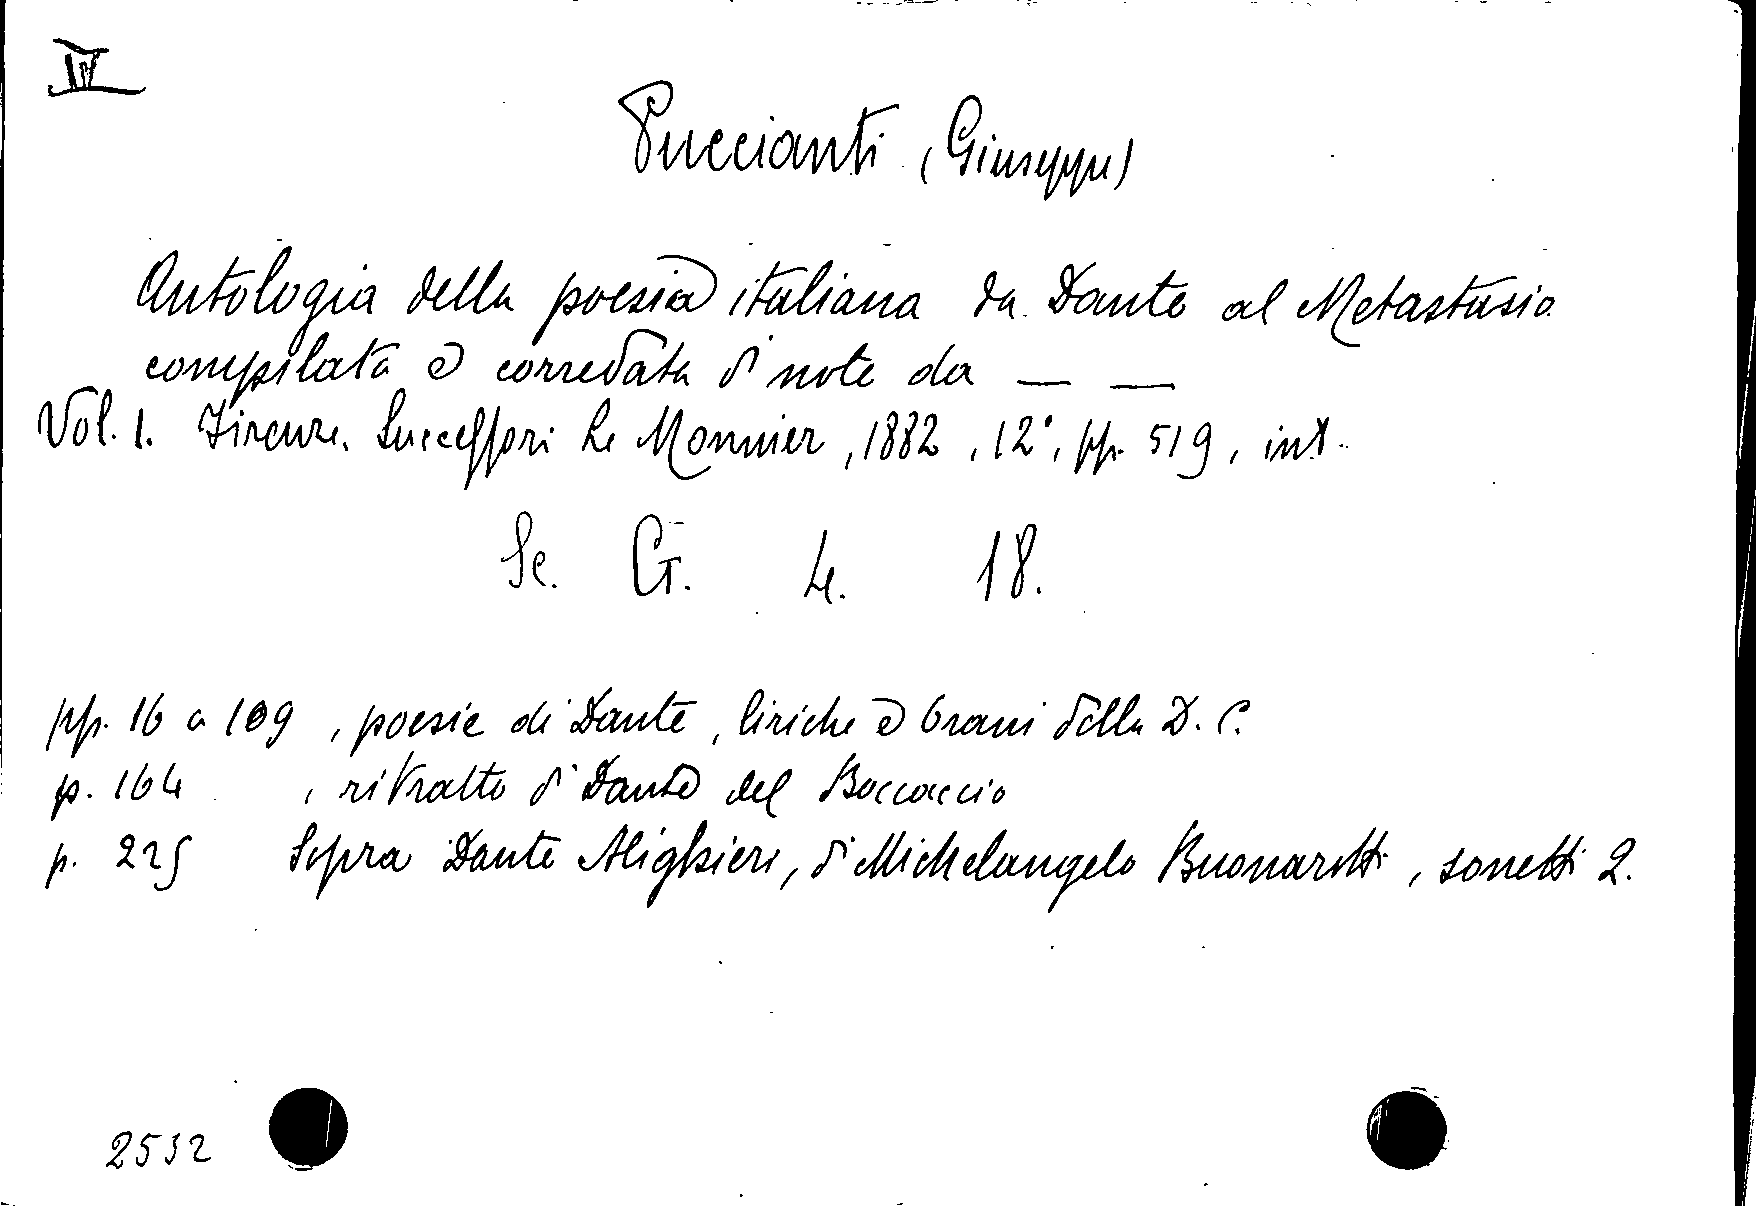 IV
Puccianti (Giuseppe)
Antologia della poesia italiana da Dante al Metastasio
compilata e corredata di note da — —
Vol. 1. Firenze. Successori Le Monnier, 1882, 12°, pp. 519, int.
Se. G. 4. 18.
pp. 16 a 109, poesie di Dante, liriche e brani della D. C.
p. 164, ritratto di Dante del Boccaccio
p. 225 Sopra Dante Alighieri, di Michelangelo Buonarotti, sonetti 2.
2532